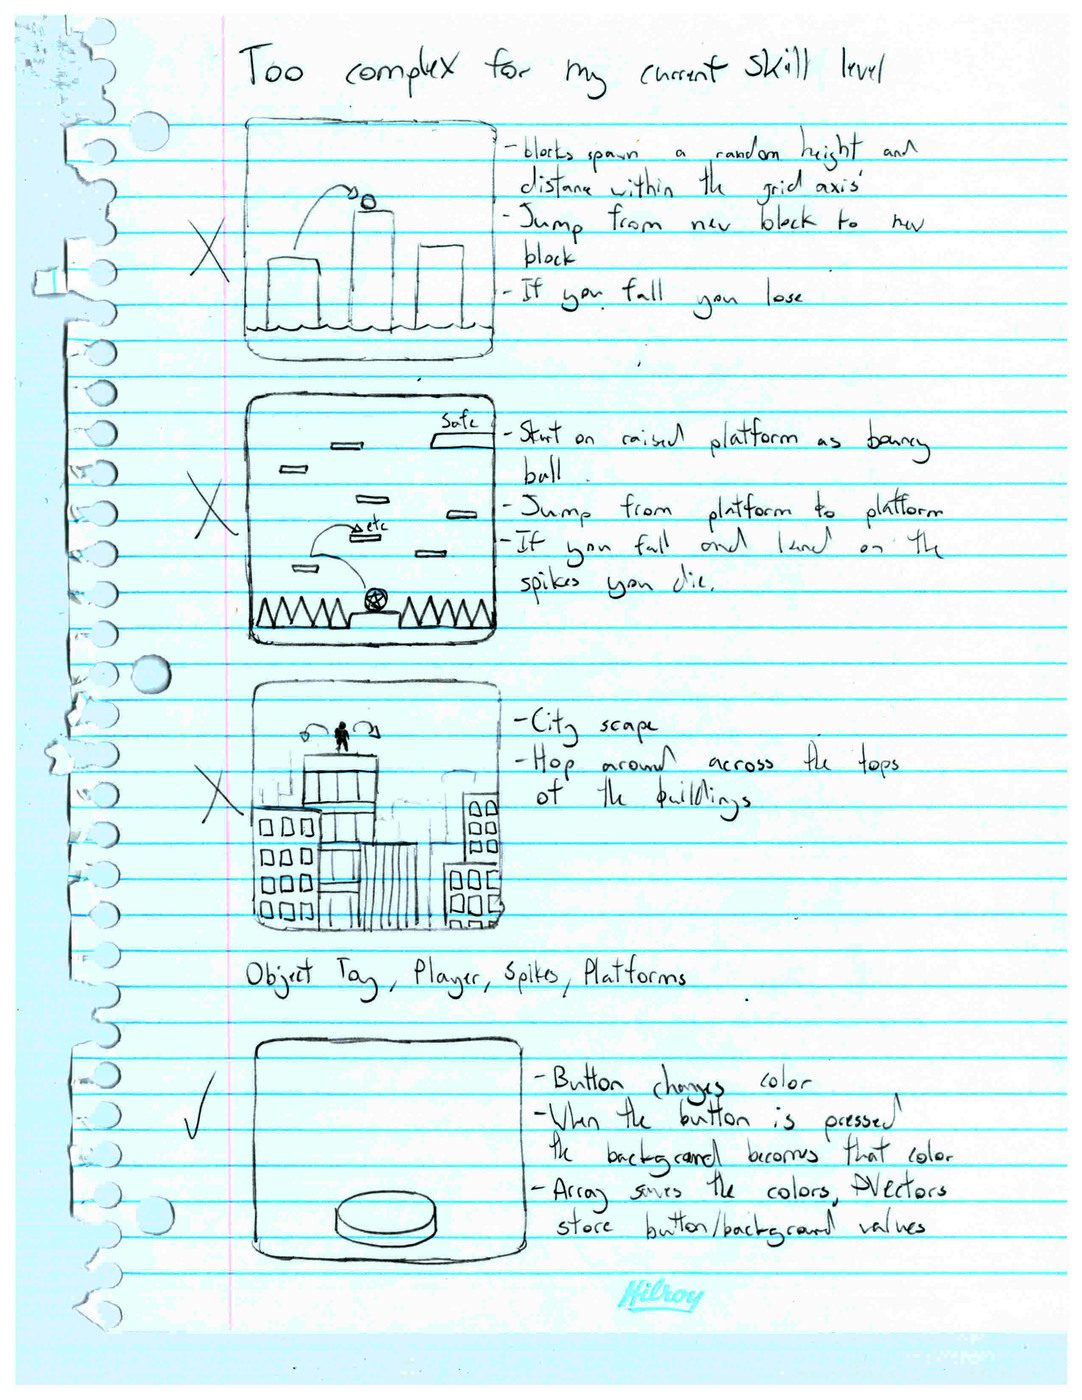 Too complex for my current skill level
- blocks spawn a random height and
distance within the grid axis'
- Jump from new block to new
block
- If you fall you lose
Safe
etc
- Start on raised platform as bouncy
ball.
- Jump from platform to platform
- If you fall and land on the
spikes you die.
- City scape
- Hop around across the tops
of the buildings
Object Tag, Player, Spikes, Platforms
- Button changes color
- When the button is pressed
the background becomes that color
- Array saves the colors, PVectors
store button/background values
Hilroy